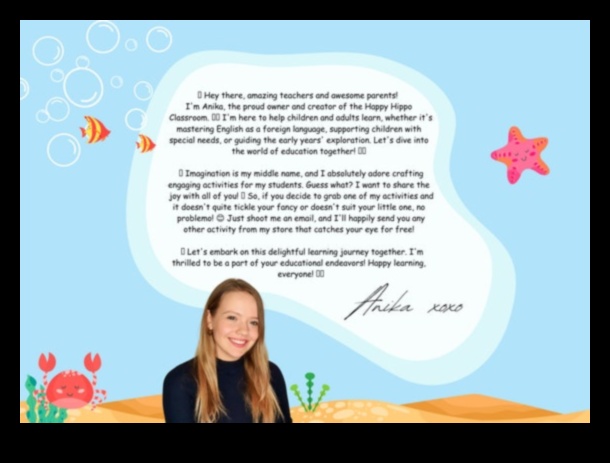 ▯ Hey there, amazing teachers and awesome parents!
I'm Anika, the proud owner and creator of the Happy Hippo
Classroom. ▯▯ I'm here to help children and adults learn, whether it's
mastering English as a foreign language, supporting children with
special needs, or guiding the early years' exploration. Let's dive into
the world of education together! ▯▯
▯ Imagination is my middle name, and I absolutely adore crafting
engaging activities for my students. Guess what? I want to share the
joy with all of you! ▯ So, if you decide to grab one of my activities and
it doesn't quite tickle your fancy or doesn't suit your little one, no
problemo! 😊 Just shoot me an email, and I'll happily send you any
other activity from my store that catches your eye for free!
▯ Let's embark on this delightful learning journey together. I'm
thrilled to be a part of your educational endeavors! Happy learning,
everyone! ▯▯
Anika xoxo